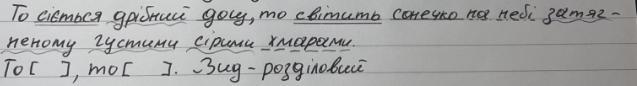 То сіється дрібний дощ, то світить сонечко на небі затяг-
неному густими сірими хмарами.
То [ ], то [ ]. Вид - розділовий